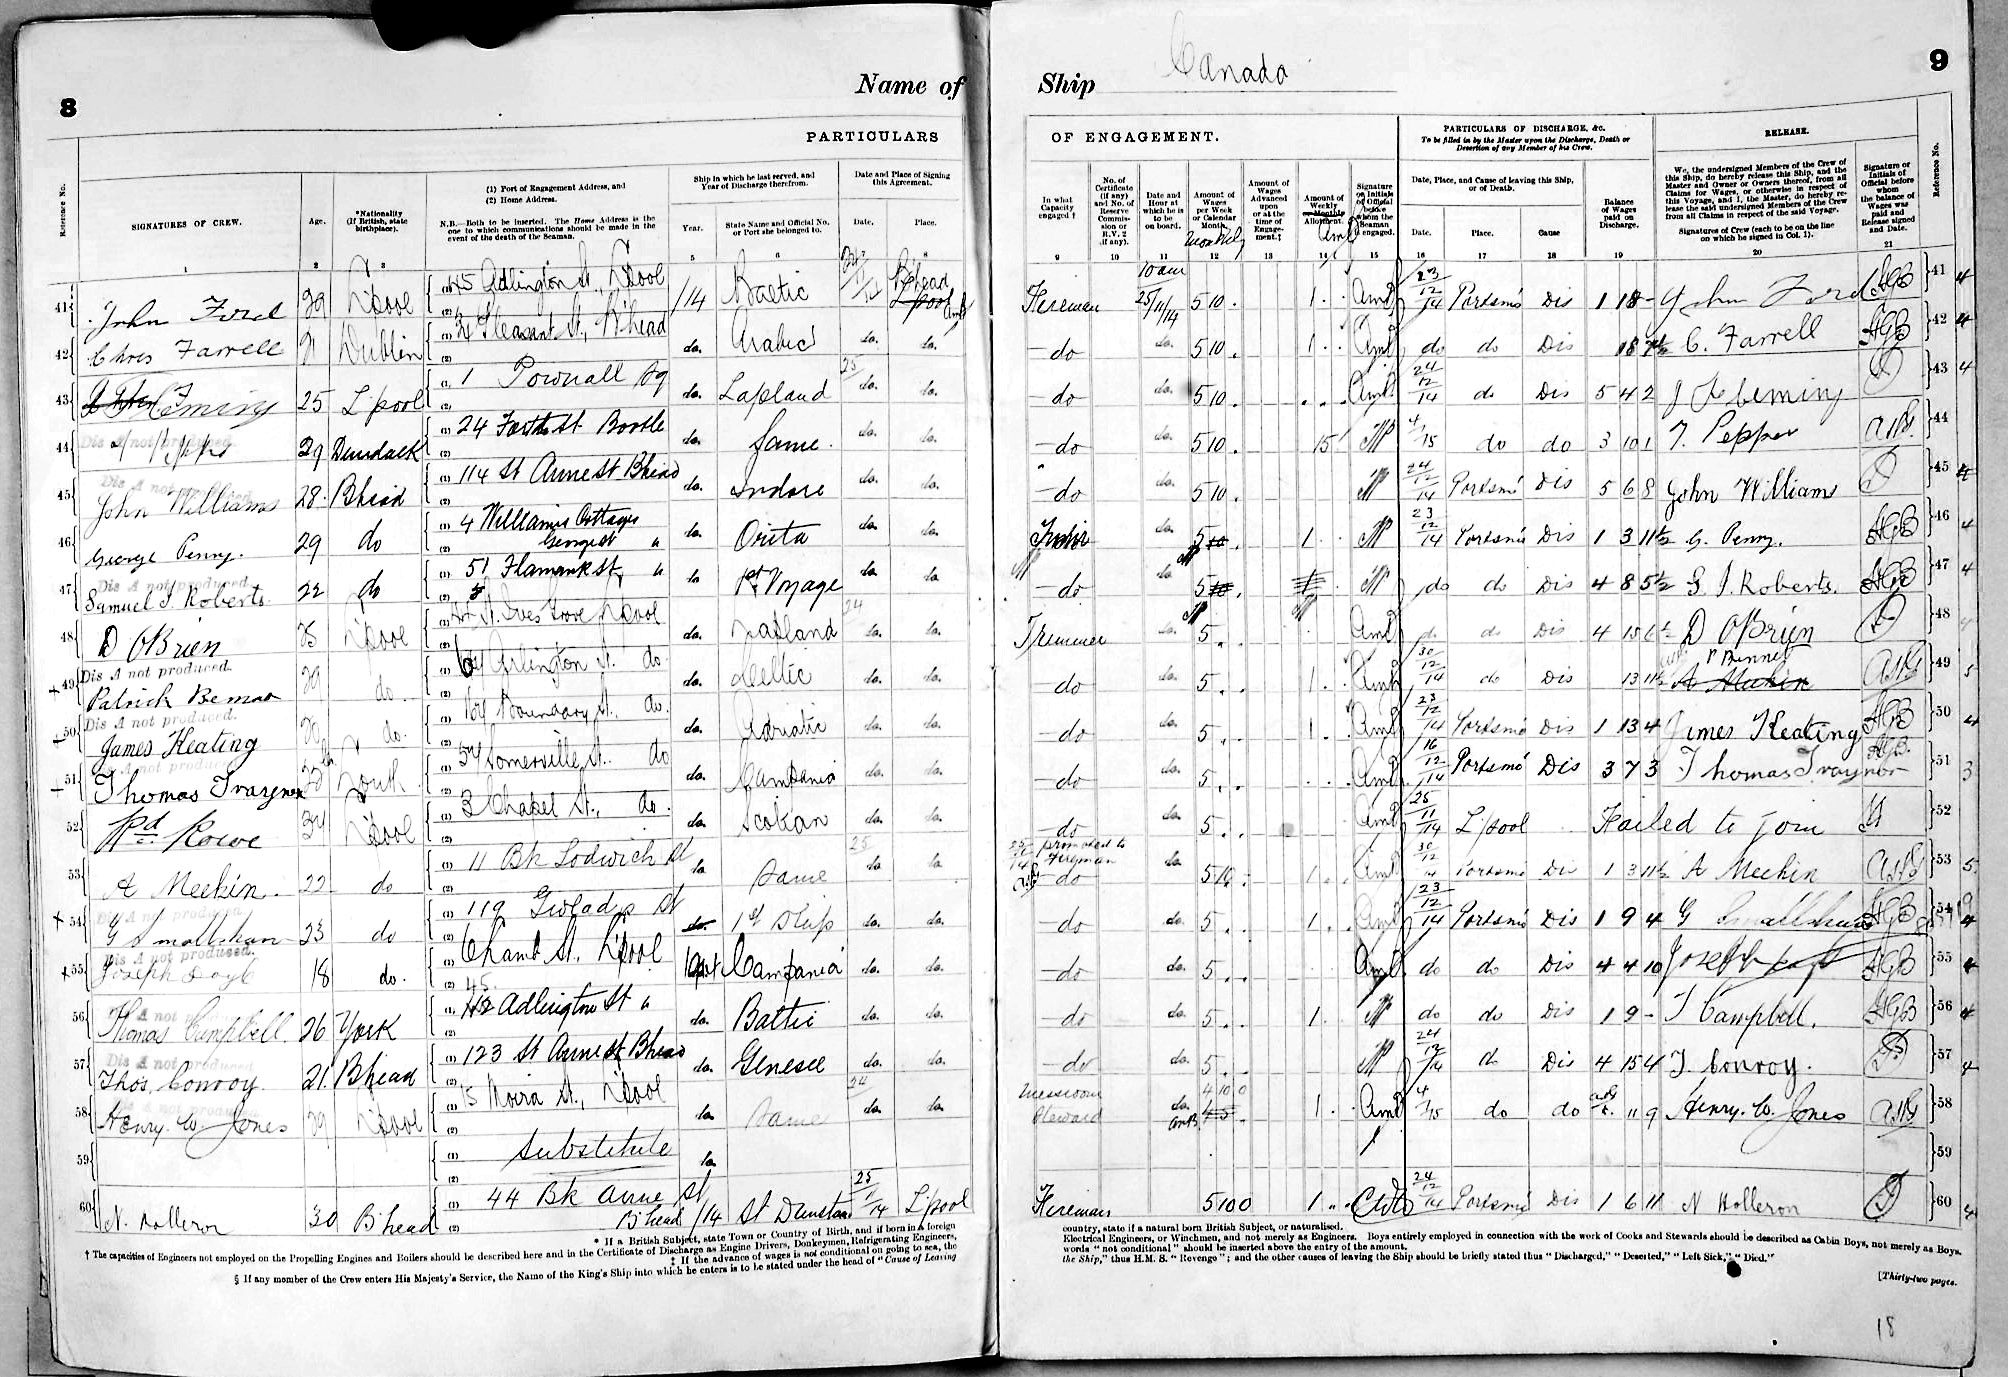 8
Name of
PARTICULARS
Reference No.
SIGNATURES OF CREW.
Age.
*Nationality (If British, state birthplace).
(1) Port of Engagement Address, and
(2) Home Address.
N.B.—Both to be inserted. The Home Address is the one to which communications should be made in the event of the death of the Seaman.
Ship in which he last served, and Year of Discharge therefrom.
Year.
State Name and Official No. or Port she belonged to.
Date and Place of Signing this Agreement.
Date.
Place.
1 2 3 5 6 8
41 John Ford 29 L'pool (1) 45 Adlington St., L'pool /14 Baltic B'head
42 Chris Farrell 21 Dublin (1) Pleasant St., B'head do. Arabic do. do.
43 Fleming 25 L'pool (1) 1 Pownall Sq do. Lapland 25 do. do.
44 Dis A not produced. 29 Dundalk (1) 24 Forth St Bootle do. Same. do. do.
45 Dis A not produced John Williams 28. B'head (1) 114 St Anne St B'head do. Indore do. do.
46 George Penny. 29 do (1) 4 Williams Cottages George St " do. Orita do. do.
47 Dis A not produced Samuel J Roberts. 22 do (1) 51 Flamank St, " do 1st Voyage do do.
48 D OBrien 35 L'pool (1) St. Ives Grove L'pool do. Lapland 24 do. do.
+49 Dis A not produced. Patrick 29 do. (1) 64 Arlington St. do. do. Celtic do. do.
+50 Dis A not produced. James Keating 30 do. (1) 164 Boundary St. do. do. Adriatic do. do.
+51 Thomas Traynor (1) 54 Somerville St. do do. Campania do. do.
52 Rd Rowe 34 L'pool (1) 3 Chapel St., do. do. Scotian do. do.
53 A Meekin. 22 do (1) 11 Bk Lodwich St do Same 25 do. do.
+54 G Smallshaw 23 do (1) 119 Gwladys St do. 1st Ship do. do.
+55 Dis A not produced. Joseph Doyle 18 do. (1) 6 Chamb St. L'pool Campania do. do.
56 Thomas Campbell. 26 York (1) 42 Adlington St " do. Baltic do. do.
57 Dis A not produced Thos. Conroy. 21. B'head (1) 123 St Anne St B'head do. Genesee do. do.
58 Henry. W. Jones 29 L'pool (1) 15 Moira St., L'pool do. Same 24 do. do.
59 (1) Substitute do.
60 N. Holleron 30 B'head (1) 44 Bk Anne St B'head /14 St Dunstan 25 L'pool
* If a British Subject, state Town or Country of Birth, and if born in a foreign
† The capacities of Engineers not employed on the Propelling Engines and Boilers should be described here and in the Certificate of Discharge as Engine Drivers, Donkeymen, Refrigerating Engineers,
‡ If the advance of wages is not conditional on going to sea, the
§ If any member of the Crew enters His Majesty's Service, the Name of the King's Ship into which he enters is to be stated under the head of "Cause of Leaving
Ship Canada
9
OF ENGAGEMENT.
PARTICULARS OF DISCHARGE, &c.
To be filled in by the Master upon the Discharge, Death or Desertion of any Member of his Crew.
RELEASE.
In what Capacity engaged †
No. of Certificate (if any) and No. of Reserve Commission or R.V. 2 (if any).
Date and Hour at which he is to be on board.
Amount of Wages per Week or Calendar Month.
Monthly
Amount of Wages Advanced upon or at the time of Engagement.‡
Amount of Weekly or Monthly Allotment.
Signature or Initials of Official before whom the Seaman is engaged.
Date, Place, and Cause of leaving this Ship, or of Death.
Date. Place. Cause
Balance of Wages paid on Discharge.
We, the undersigned Members of the Crew of this Ship, do hereby release this Ship, and the Master and Owner or Owners thereof, from all Claims for Wages, or otherwise in respect of this Voyage, and I, the Master, do hereby release the said undersigned Members of the Crew from all Claims in respect of the said Voyage.
Signatures of Crew (each to be on the line on which he signed in Col. 1).
Signature or Initials of Official before whom the balance of Wages was paid and Release signed and Date.
Reference No.
9 10 11 12 13 14 15 16 17 18 19 20 21
Fireman 10 am 25/11/14 5 10. 1.. 23/12/14 Portsmo Dis 1 18 - John Ford AGB 41 4
do do. 5 10. 1.. do do Dis 18 C. Farrell AGB 42 4
do do. 5 10. 24/12/14 do Dis 5 4 2 J Fleming 43 4
do do. 5 10. 15 4/1/15 do do 3 10 1 T. Pepper 44
do do. 5 10. 24/12/14 Portsmo Dis 5 6 8 John Williams 45 4
do. 5 1. 23/12/14 Portsmo Dis 1 3 11½ G. Penny. AGB 46 4
do do 5 do do Dis 4 8 5½ S. J. Roberts. AGB 47 4
Trimmer do. 5.. do do Dis 4 D OBrien 48 4
do do. 5.. 1.. 30/12/14 do Dis 13 11½ P Bennet A Meekin 49 5
do do. 5.. 1. 23/12/14 Portsmo Dis 1 13 4 James Keating AGB 50 4
do do. 5.. 16/12/14 Portsmo Dis 3 7 3 Thomas Traynor AGB 51 3
do 5.. 25/11/14 L'pool Failed to join 52
promoted to Fireman do do. 5 10. 1.. 30/12/14 Portsmo Dis 1 3 11½ A Meekin 53 5
do do. 5.. 1.. 23/12/14 Portsmo Dis 1 9 4 G Smallshaw AGB 54 4
do do. 5.. do do Dis 4 4 10 Joseph AGB 55 4
do do. 5.. 1. do do Dis 1 9 - T Campbell. AGB 56 4
do do. 5. 24/12/14 do Dis 4 15 4 T. Conroy. 57 4
Messroom Steward do. 4 10 0 1.. 4/1/15 do do 11 9 Henry. W. Jones 58
59
Fireman 5 10 0 1... 24/12/14 Portsmo Dis 1 6 11 N Holleron 60 4
country, state if a natural born British Subject, or naturalised.
Electrical Engineers, or Winchmen, and not merely as Engineers. Boys entirely employed in connection with the work of Cooks and Stewards should be described as Cabin Boys, not merely as Boys.
words "not conditional" should be inserted above the entry of the amount.
the Ship," thus H.M.S. "Revenge"; and the other causes of leaving the Ship should be briefly stated thus "Discharged," "Deserted," "Left Sick," "Died."
[Thirty-two pages.
18